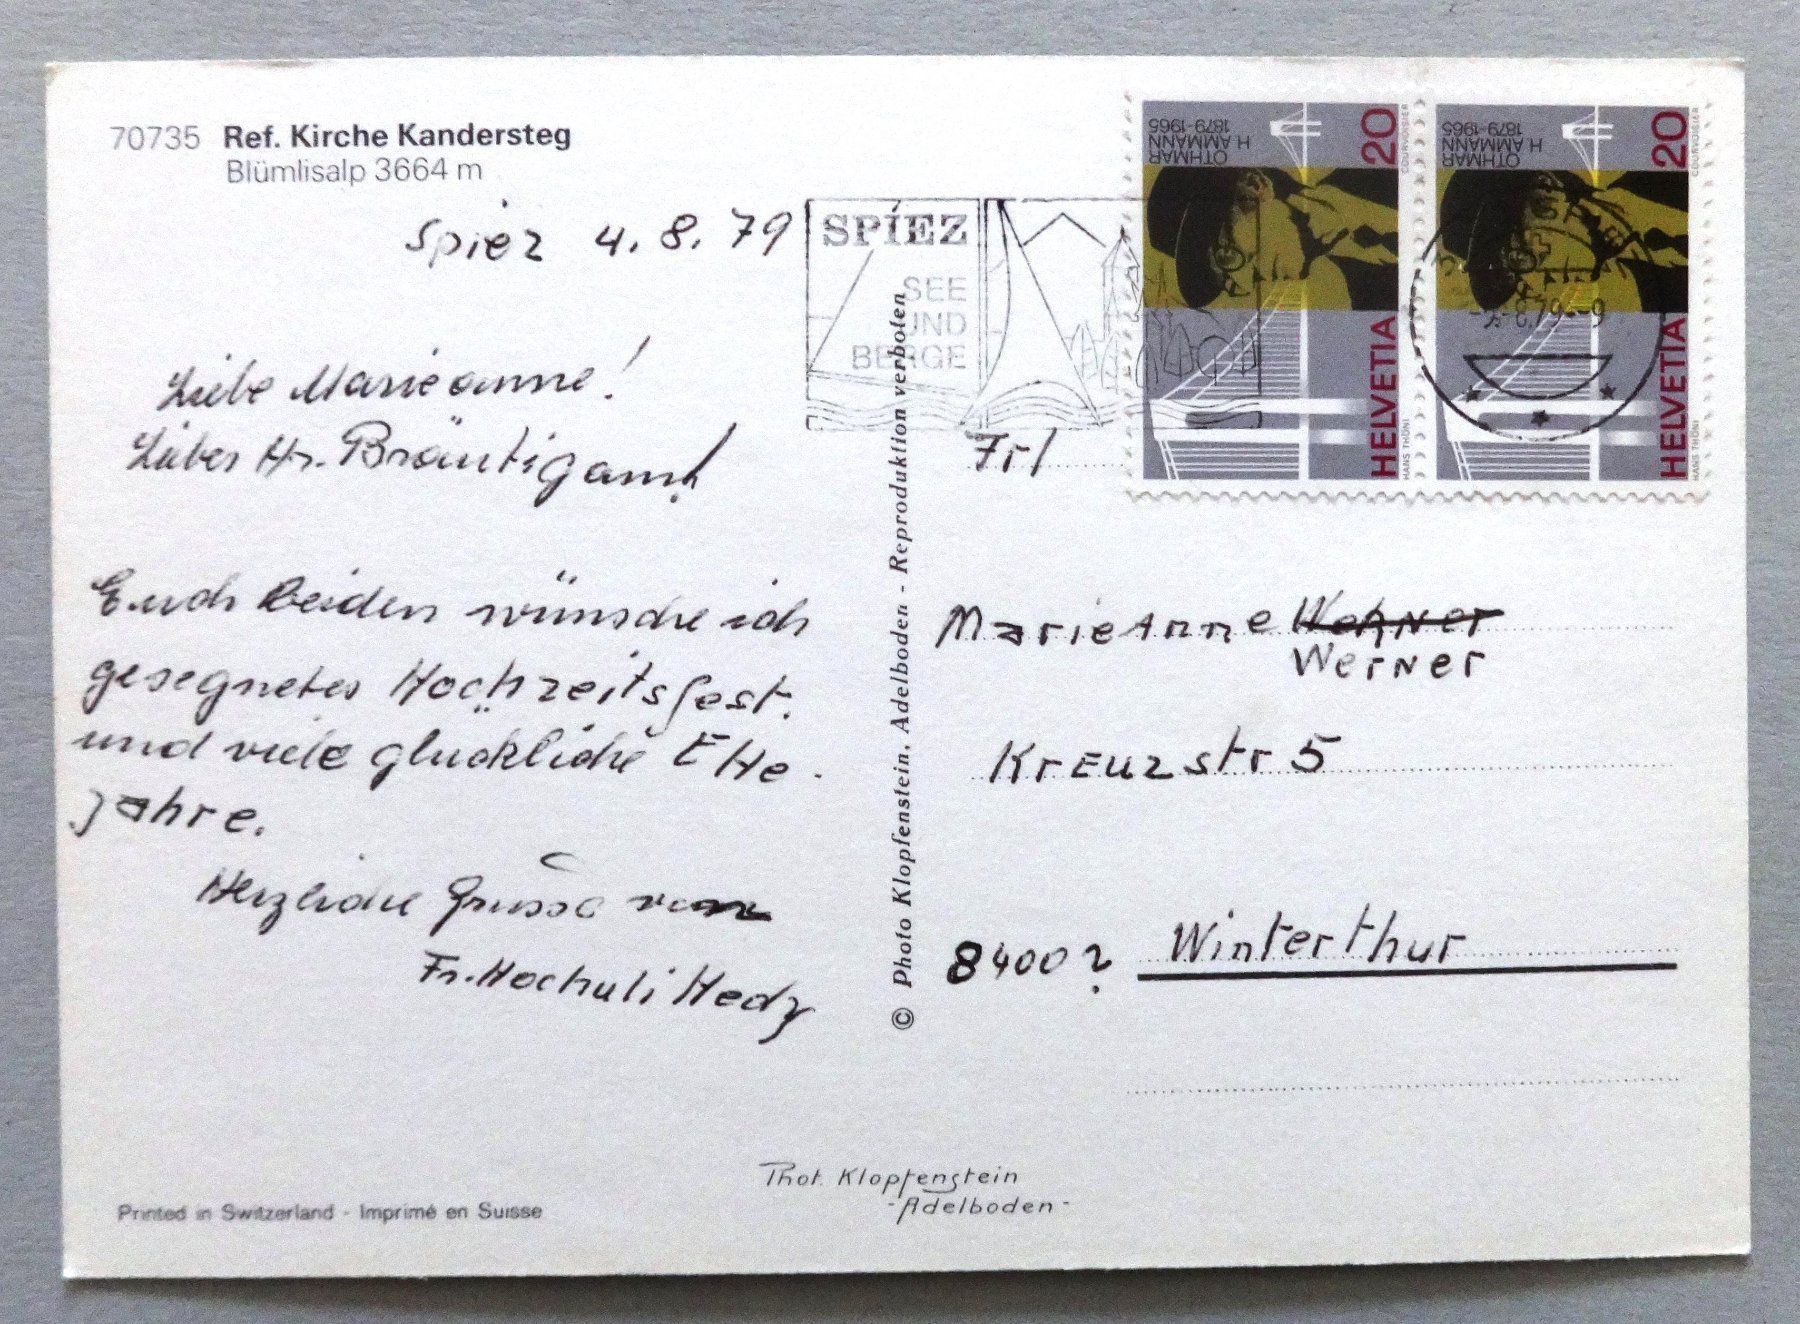 70735 Ref. Kirche Kandersteg
Blümlisalp 3664 m
Spiez 4.8.79
Liebe Marieanne!
Lieber Hr. Bräutigam!
Euch beiden wünsche ich
gesegnetes Hochzeitsfest.
und viele glückliche EHe-
jahre.
Herzliche Grüsse von
Fr. Hochuli Hedy
Printed in Switzerland - Imprimé en Suisse
SPIEZ
SEE
UND
BERGE
© Photo Klopfenstein, Adelboden - Reproduktion verboten
Phot. Klopfenstein
- Adelboden -
OTHMAR
H. AMMANN
1879-1965
20
HELVETIA
COURVOISIER
HANS THÖNI
OTHMAR
H. AMMANN
1879-1965
20
HELVETIA
COURVOISIER
HANS THÖNI
Frl
MarieAnne
Werner
Kreuzstr 5
8400? Winterthur